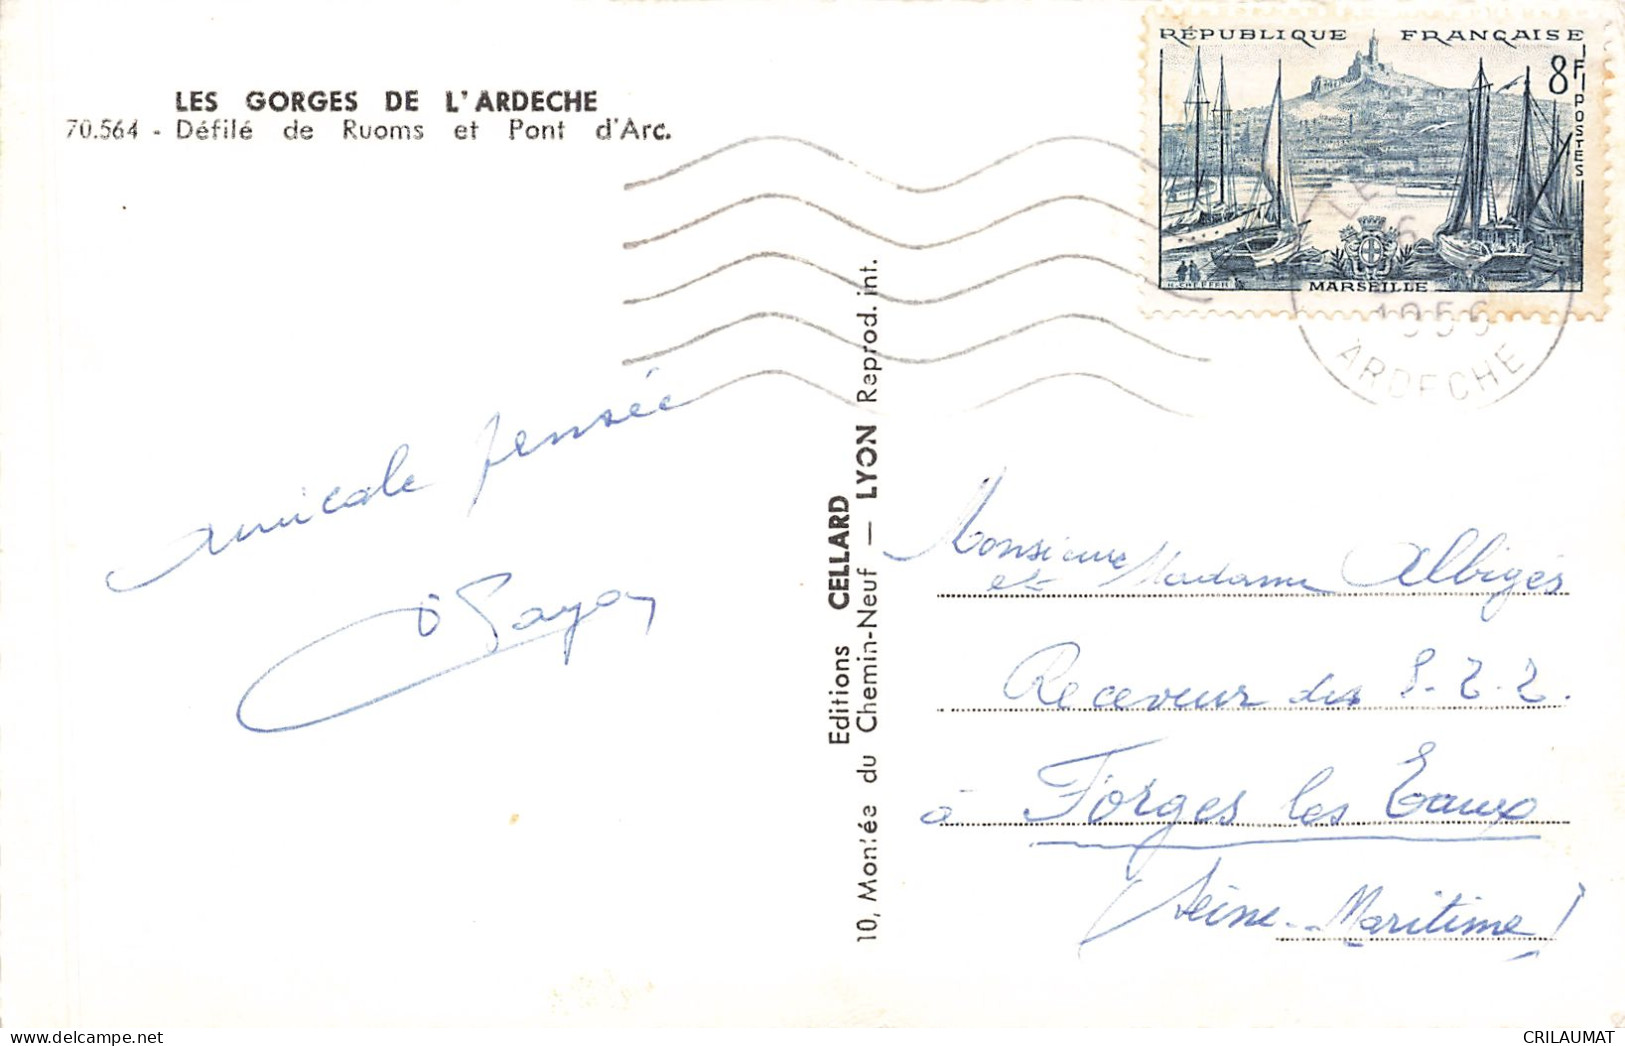 LES GORGES DE L'ARDECHE
70.564 - Défilé de Ruoms et Pont d'Arc.
RÉPUBLIQUE FRANÇAISE
8F
POSTES
H. CHEFFER
MARSEILLE
1956
ARDECHE
amicale pensée
Editions CELLARD
10, Montée du Chemin-Neuf — LYON Reprod. int.
Monsieur
et Madame Albigès
Receveur des P.T.T.
à Forges les Eaux
(Seine-Maritime)
CRILAUMAT